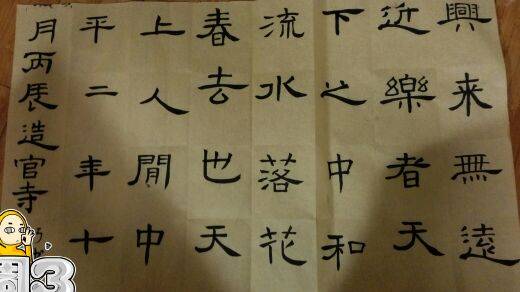 興来無遠
近樂者天
下之中和
流水落花
春去也天
上人間中
平二年十
月丙辰造官寺
周3